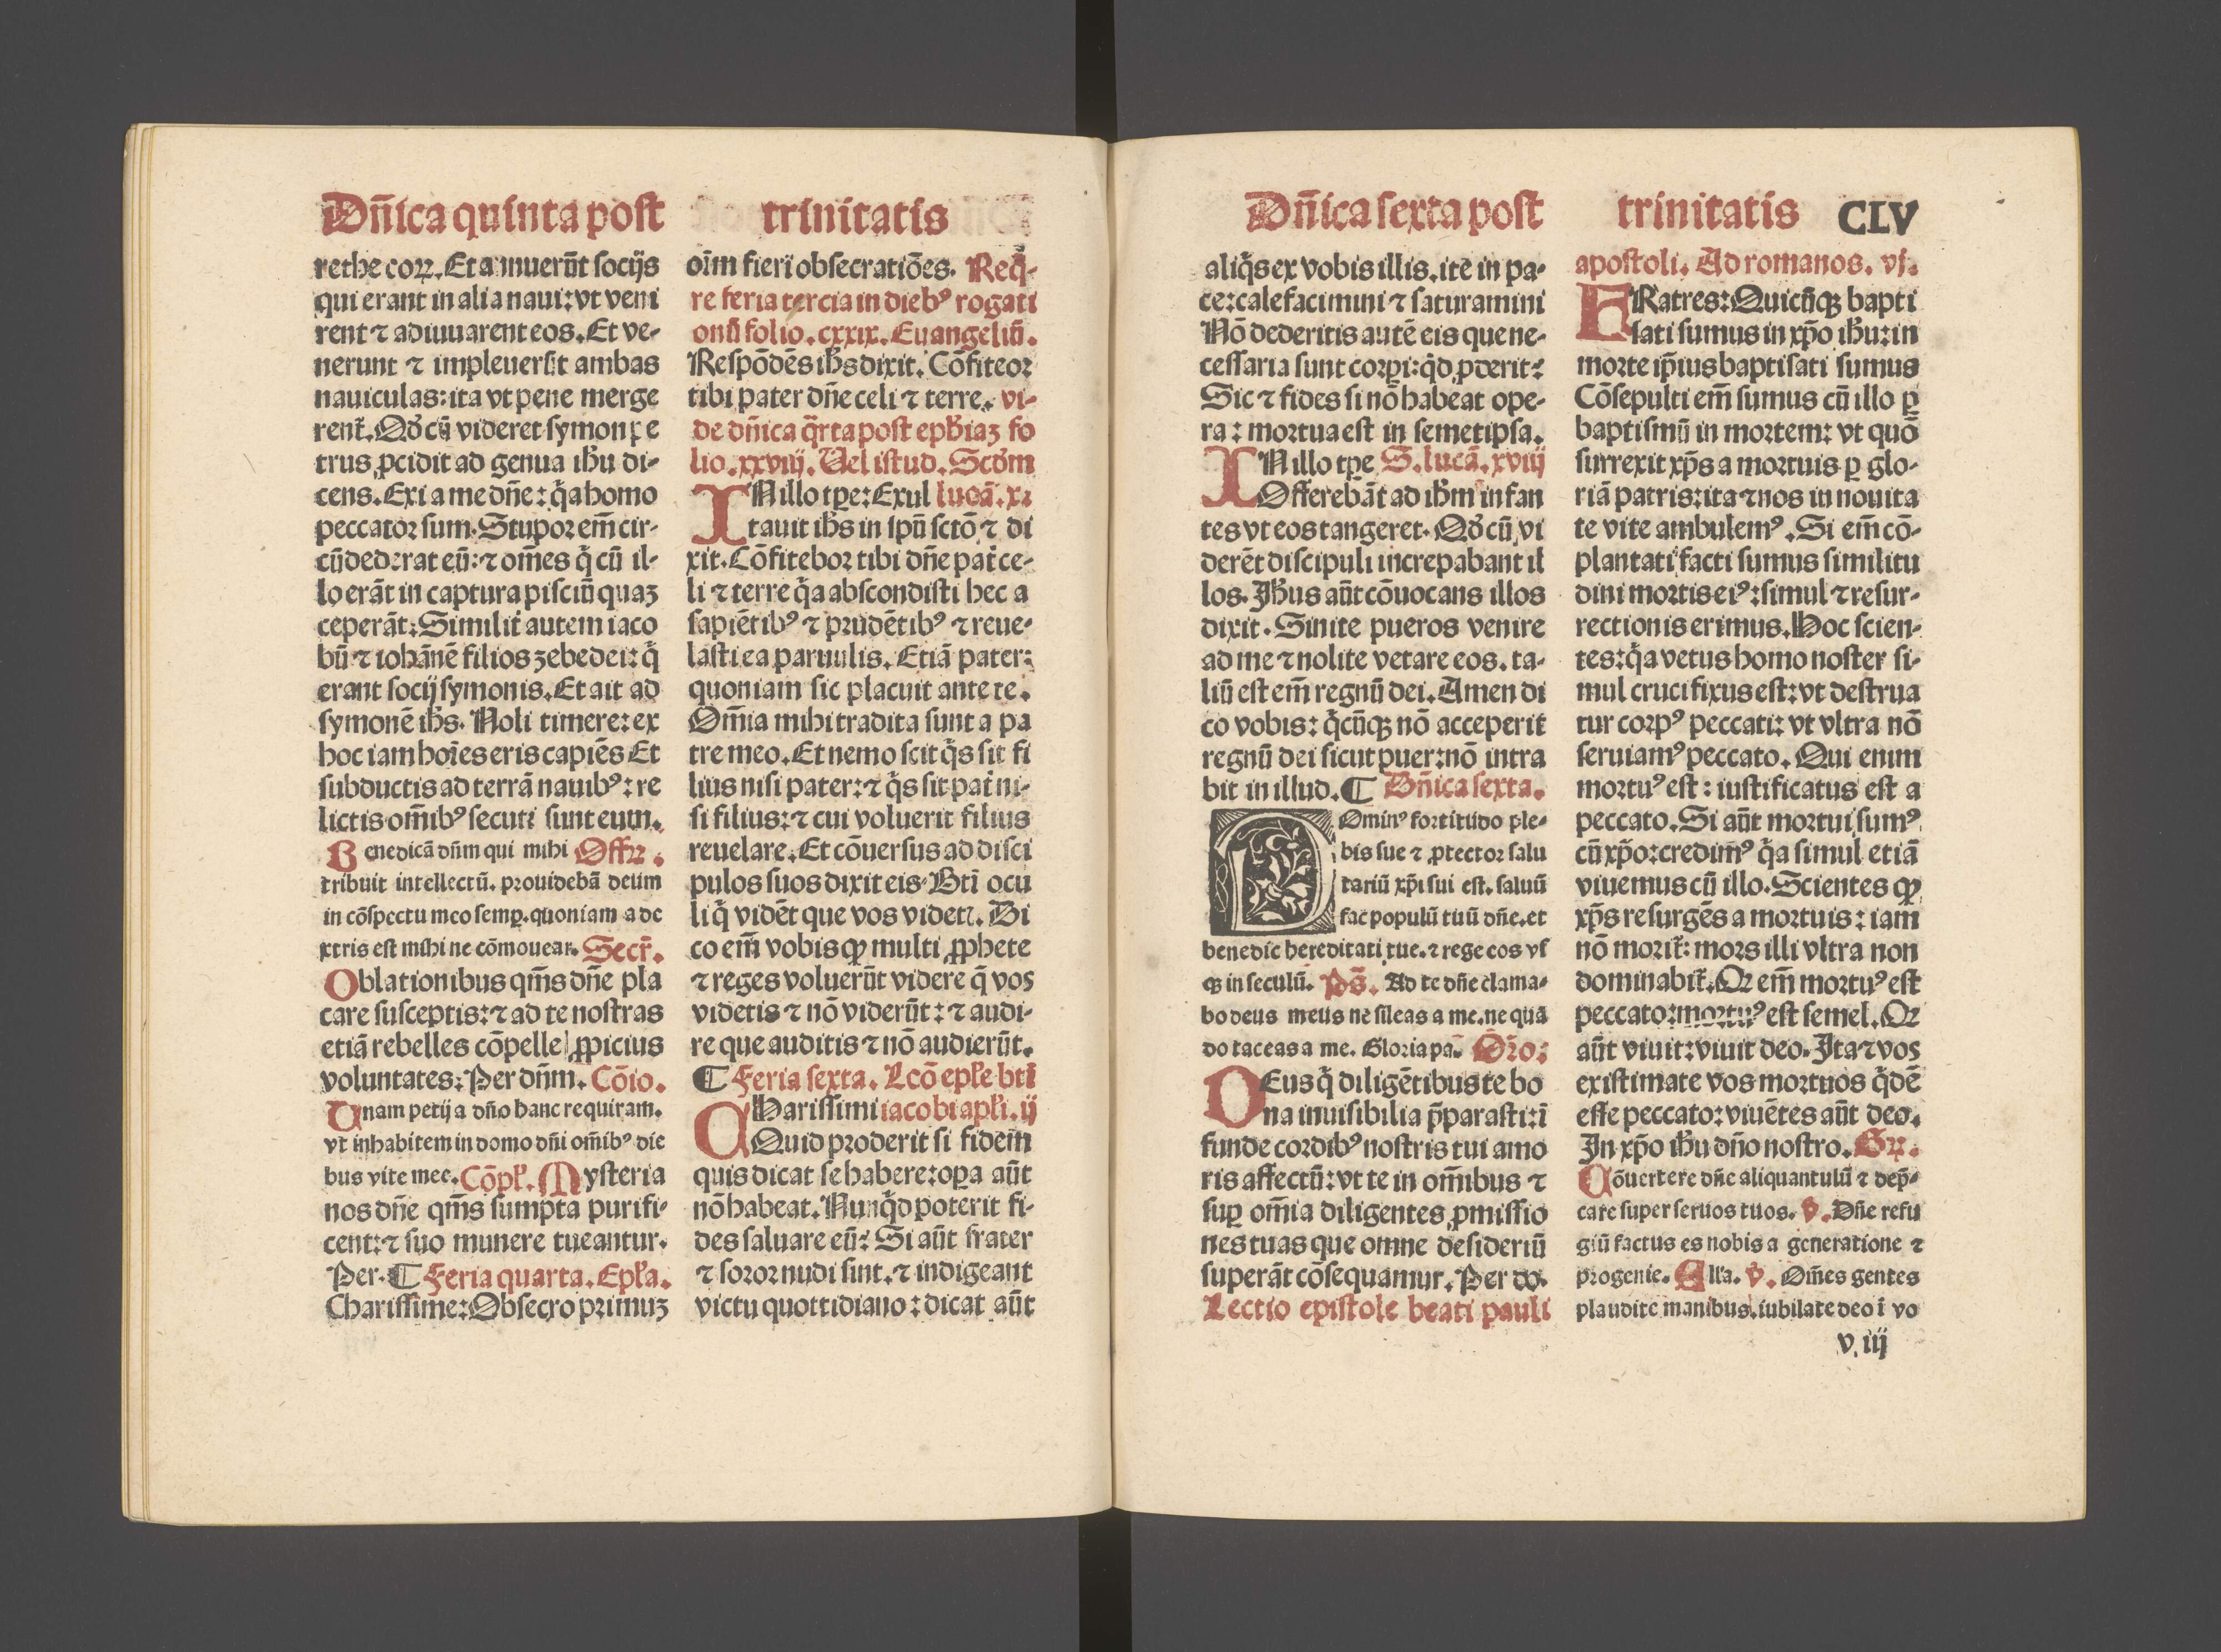 Dñica quinta post trinitatis
rethe corꝝ. Et annuerũt socijs
qui erant in alia naui: vt veni
rent ⁊ adiuuarent eos. Et ve-
nerunt ⁊ impleuerũt ambas
nauiculas: ita vt pene merge
rent̃. Qđ cũ videret symon pe
trus ꝓcidit ad genua ihũ di-
cens. Exi a me dñe: q̃a homo
peccator sum. Stupor em̃ cir-
cũdederat eũ: ⁊ om̃es q̃ cũ il-
lo erãt in captura pisciũ quaꝫ
ceperãt. Similit̃ autem iaco
bũ ⁊ iohãnẽ filios zebedei: q̃
erant socij symonis. Et ait ad
symonẽ ihs̃. Noli timere: ex
hoc iam hoĩes eris capiẽs Et
subductis ad terrã nauibꝰ: re
lictis om̃ibꝰ secuti sunt eum.
Benedicã dñm qui mihi Offꝝ.
tribuit intellectũ. prouidebã deum
in cõspectu meo semꝑ. quoniam a de
xtris est mihi ne cõmouear. Secr̃.
Oblationibus qm̃s dñe pla
care susceptis: ⁊ ad te nostras
etiã rebelles cõpelle ꝓpicius
voluntates. Per dñm. Cõio.
Unam petij a dño hanc requiram.
vt inhabitem in domo dñi om̃ibꝰ die
bus vite mee. Cõpł. Mysteria
nos dñe qm̃s sumpta purifi-
cent: ⁊ suo munere tueantur.
Per. ¶ Feria quarta. Epła.
Charissime: Obsecro primuꝫ
oĩm fieri obsecratiões. Req̃-
re feria tercia in diebꝰ rogati
onũ folio. cxxix. Euangeliũ.
Respõdẽs ihs̃ dixit. Cõfiteor
tibi pater dñe celi ⁊ terre. vi-
de dñica q̃rta post ephiaꝫ fo
lio. xxviij. Uel istud. Scđm
INillo tꝑe: Exul lucã. x.
tauit ihs̃ in spũ sctõ ⁊ di
xit. Cõfitebor tibi dñe pat̃ ce-
li ⁊ terre q̃a abscondisti hec a
sapiẽtibꝰ ⁊ prudẽtibꝰ ⁊ reue-
lasti ea paruulis. Etiã pater:
quoniam sic placuit ante te.
Om̃ia mihi tradita sunt a pa
tre meo. Et nemo scit q̃s sit fi
lius nisi pater: ⁊ q̃s sit pat̃ ni-
si filius: ⁊ cui voluerit filius
reuelare. Et cõuersus ad disci
pulos suos dixit eis. Bti ocu
li q̃ vidẽt que vos videtꝭ. Di
co em̃ vobis qꝙ multi ꝓphete
⁊ reges voluerũt videre q̃ vos
videtis ⁊ nõ viderũt: ⁊ audi-
re que auditis ⁊ nõ audierũt.
¶ Feria sexta. Lcõ epłe bti
CHarissimi iacobi apłi. ij
Quid proderit si fidem
quis dicat se habere: oꝑa aũt
nõ habeat. Nunq̃d poterit fi-
des saluare eũ: Si aũt frater
⁊ soror nudi sint. ⁊ indigeant
victu quottidiano: dicat aũt
Dñica sexta post trinitatis CLV
aliq̃s ex vobis illis. ite in pa-
ce: calefacimini ⁊ saturamini
Nõ dederitis autẽ eis que ne-
cessaria sunt corꝑi: q̃d ꝓderit:
Sic ⁊ fides si nõ habeat ope-
ra: mortua est in semetipsa.
INillo tꝑe S. lucã. xviij
Offerebãt ad ihm̃ infan
tes vt eos tangeret. Qđ cũ vi
derẽt discipuli increpabant il
los. Ihus aũt cõuocans illos
dixit. Sinite pueros venire
ad me ⁊ nolite vetare eos. ta-
liũ est em̃ regnũ dei. Amen di
co vobis: q̃cũqꝫ nõ acceperit
regnũ dei sicut puer: nõ intra
bit in illud. ¶ Dñica sexta.
Dominꝰ fortitudo ple-
bis sue ⁊ ꝓtector salu
tariũ xp̃i sui est. saluũ
fac populũ tuũ dñe. et
benedic hereditati tue. ⁊ rege eos vs
qꝫ in seculũ. ps̃. Ad te dñe clama-
bo deus meus ne sileas a me. ne quã
do taceas a me. Gloria pa. Or̃o.
DEus q̃ diligẽtibus te bo
na inuisibilia p̃parasti: ĩ
funde cordibꝰ nostris tui amo
ris affectũ: vt te in om̃ibus ⁊
suꝑ om̃ia diligentes ꝓmissio
nes tuas que omne desideriũ
superãt cõsequamur. Per do.
Lectio epistole beati pauli
apostoli. Ad romanos. vj.
FRatres: Quicũqꝫ bapti
sati sumus in xp̃o ihu: in
morte ip̃ius baptisati sumus
Cõsepulti em̃ sumus cũ illo ꝑ
baptismũ in mortem: vt quõ
surrexit xp̃s a mortuis ꝑ glo-
riã patris: ita ⁊ nos in nouita
te vite ambulemꝰ. Si em̃ cõ-
plantati facti sumus similitu
dini mortis eiꝰ: simul ⁊ resur-
rectionis erimus. Hoc scien-
tes: q̃a vetus homo noster si-
mul crucifixus est: vt destrua
tur corpꝰ peccati: vt vltra nõ
seruiamꝰ peccato. Qui enim
mortuꝰ est: iustificatus est a
peccato. Si aũt mortui sumꝰ
cũ xp̃o: credimꝰ q̃a simul etiã
viuemus cũ illo. Scientes qꝙ
xp̃s resurgẽs a mortuis: iam
nõ morit̃: mors illi vltra non
dominabit̃. Qꝛ em̃ mortuꝰ est
peccato: mortuꝰ est semel. Qꝛ
aũt viuit: viuit deo. Ita ⁊ vos
existimate vos mortuos q̃dẽ
esse peccato: viuẽtes aũt deo.
In xp̃o ihu dño nostro. Gꝝ.
Cõuertere dñe aliquantulũ ⁊ dep̃-
care super seruos tuos. v̓. Dñe refu
giũ factus es nobis a generatione ⁊
progenie. Alla. v̓. Om̃es gentes
plaudite manibus. iubilate deo ĩ vo
v. iij